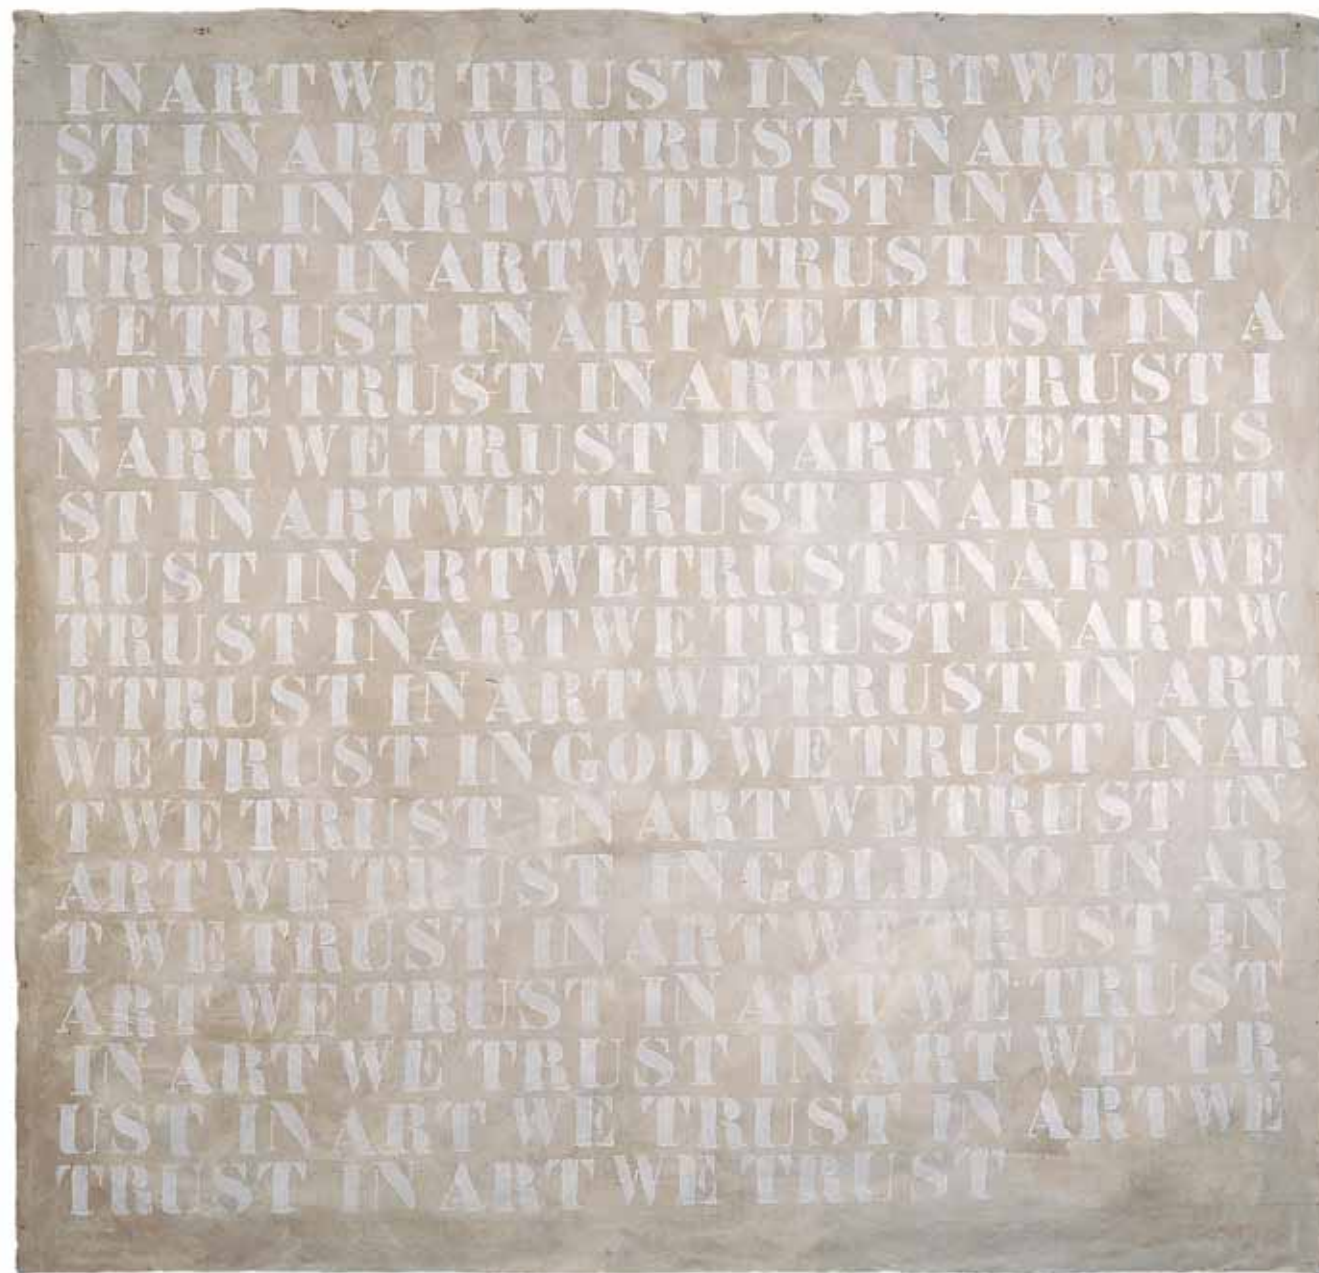 IN ART WE TRUST IN ART WE TRU
ST IN ART WE TRUST IN ART WE T
RUST IN ART WE TRUST IN ART WE
TRUST IN ART WE TRUST IN ART
WE TRUST IN ART WE TRUST IN A
RT WE TRUST IN ART WE TRUST I
N ART WE TRUST IN ART WE TRUS
ST IN ART WE TRUST IN ART WE T
RUST IN ART WE TRUST IN ART WE
TRUST IN ART WE TRUST IN ART W
E TRUST IN ART WE TRUST IN ART
WE TRUST IN GOD WE TRUST IN AR
T WE TRUST IN ART WE TRUST IN
ART WE TRUST IN GOLD NO IN AR
T WE TRUST IN ART WE TRUST IN
ART WE TRUST IN ART WE TRUST
IN ART WE TRUST IN ART WE TR
UST IN ART WE TRUST IN ART WE
TRUST IN ART WE TRUST